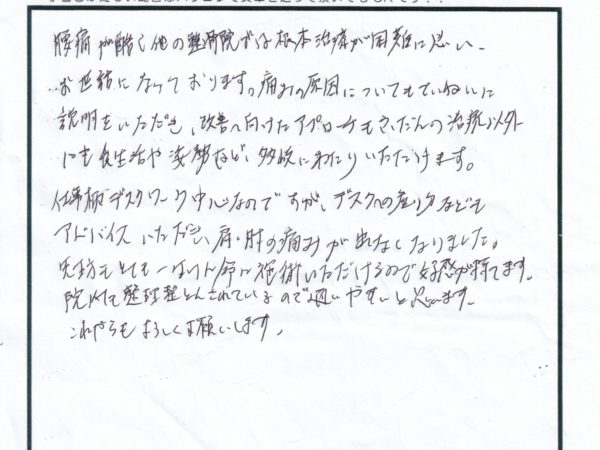 腰痛が酷く他の整骨院では根本治療が困難に思い、
お世話になっております。痛みの原因についてもていねいに
説明をいただき、改善へ向けたアプローチもふだんの治療以外
にも食生活や姿勢など、多岐にわたりいただけます。
仕事柄デスクワーク中心なのですが、デスクへの座り方なども
アドバイスいただき、肩・肘の痛みが出なくなりました。
先生もとても一生けん命に施術いただけるので好感が持てます。
院内も整理整とんされているので通いやすいと思います。
これからもよろしくお願いします。